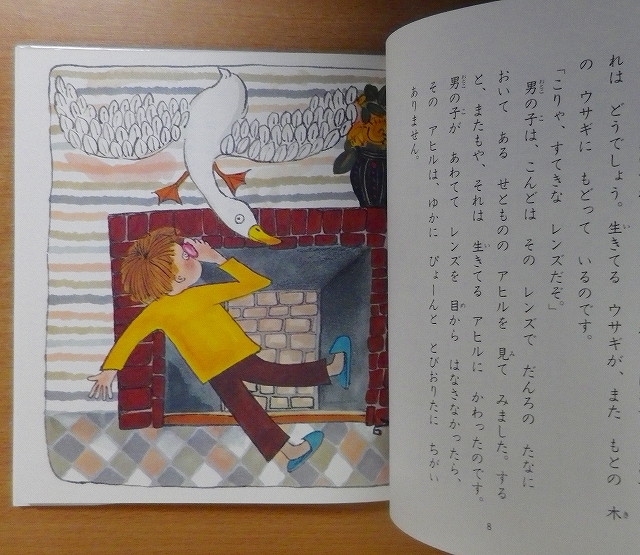 れは どうでしょう。生きてる ウサギが、また もとの 木
の ウサギに もどって いるのです。
「こりゃ、すてきな レンズだぞ。」
男の子は、こんどは その レンズで だんろの たなに
おいて ある せとものの アヒルを 見て みました。する
と、またもや、それは 生きてる アヒルに かわったのです。
男の子が あわてて レンズを 目から はなさなかったら、
その アヒルは、ゆかに ぴょーんと とびおりたに ちがい
ありません。
8